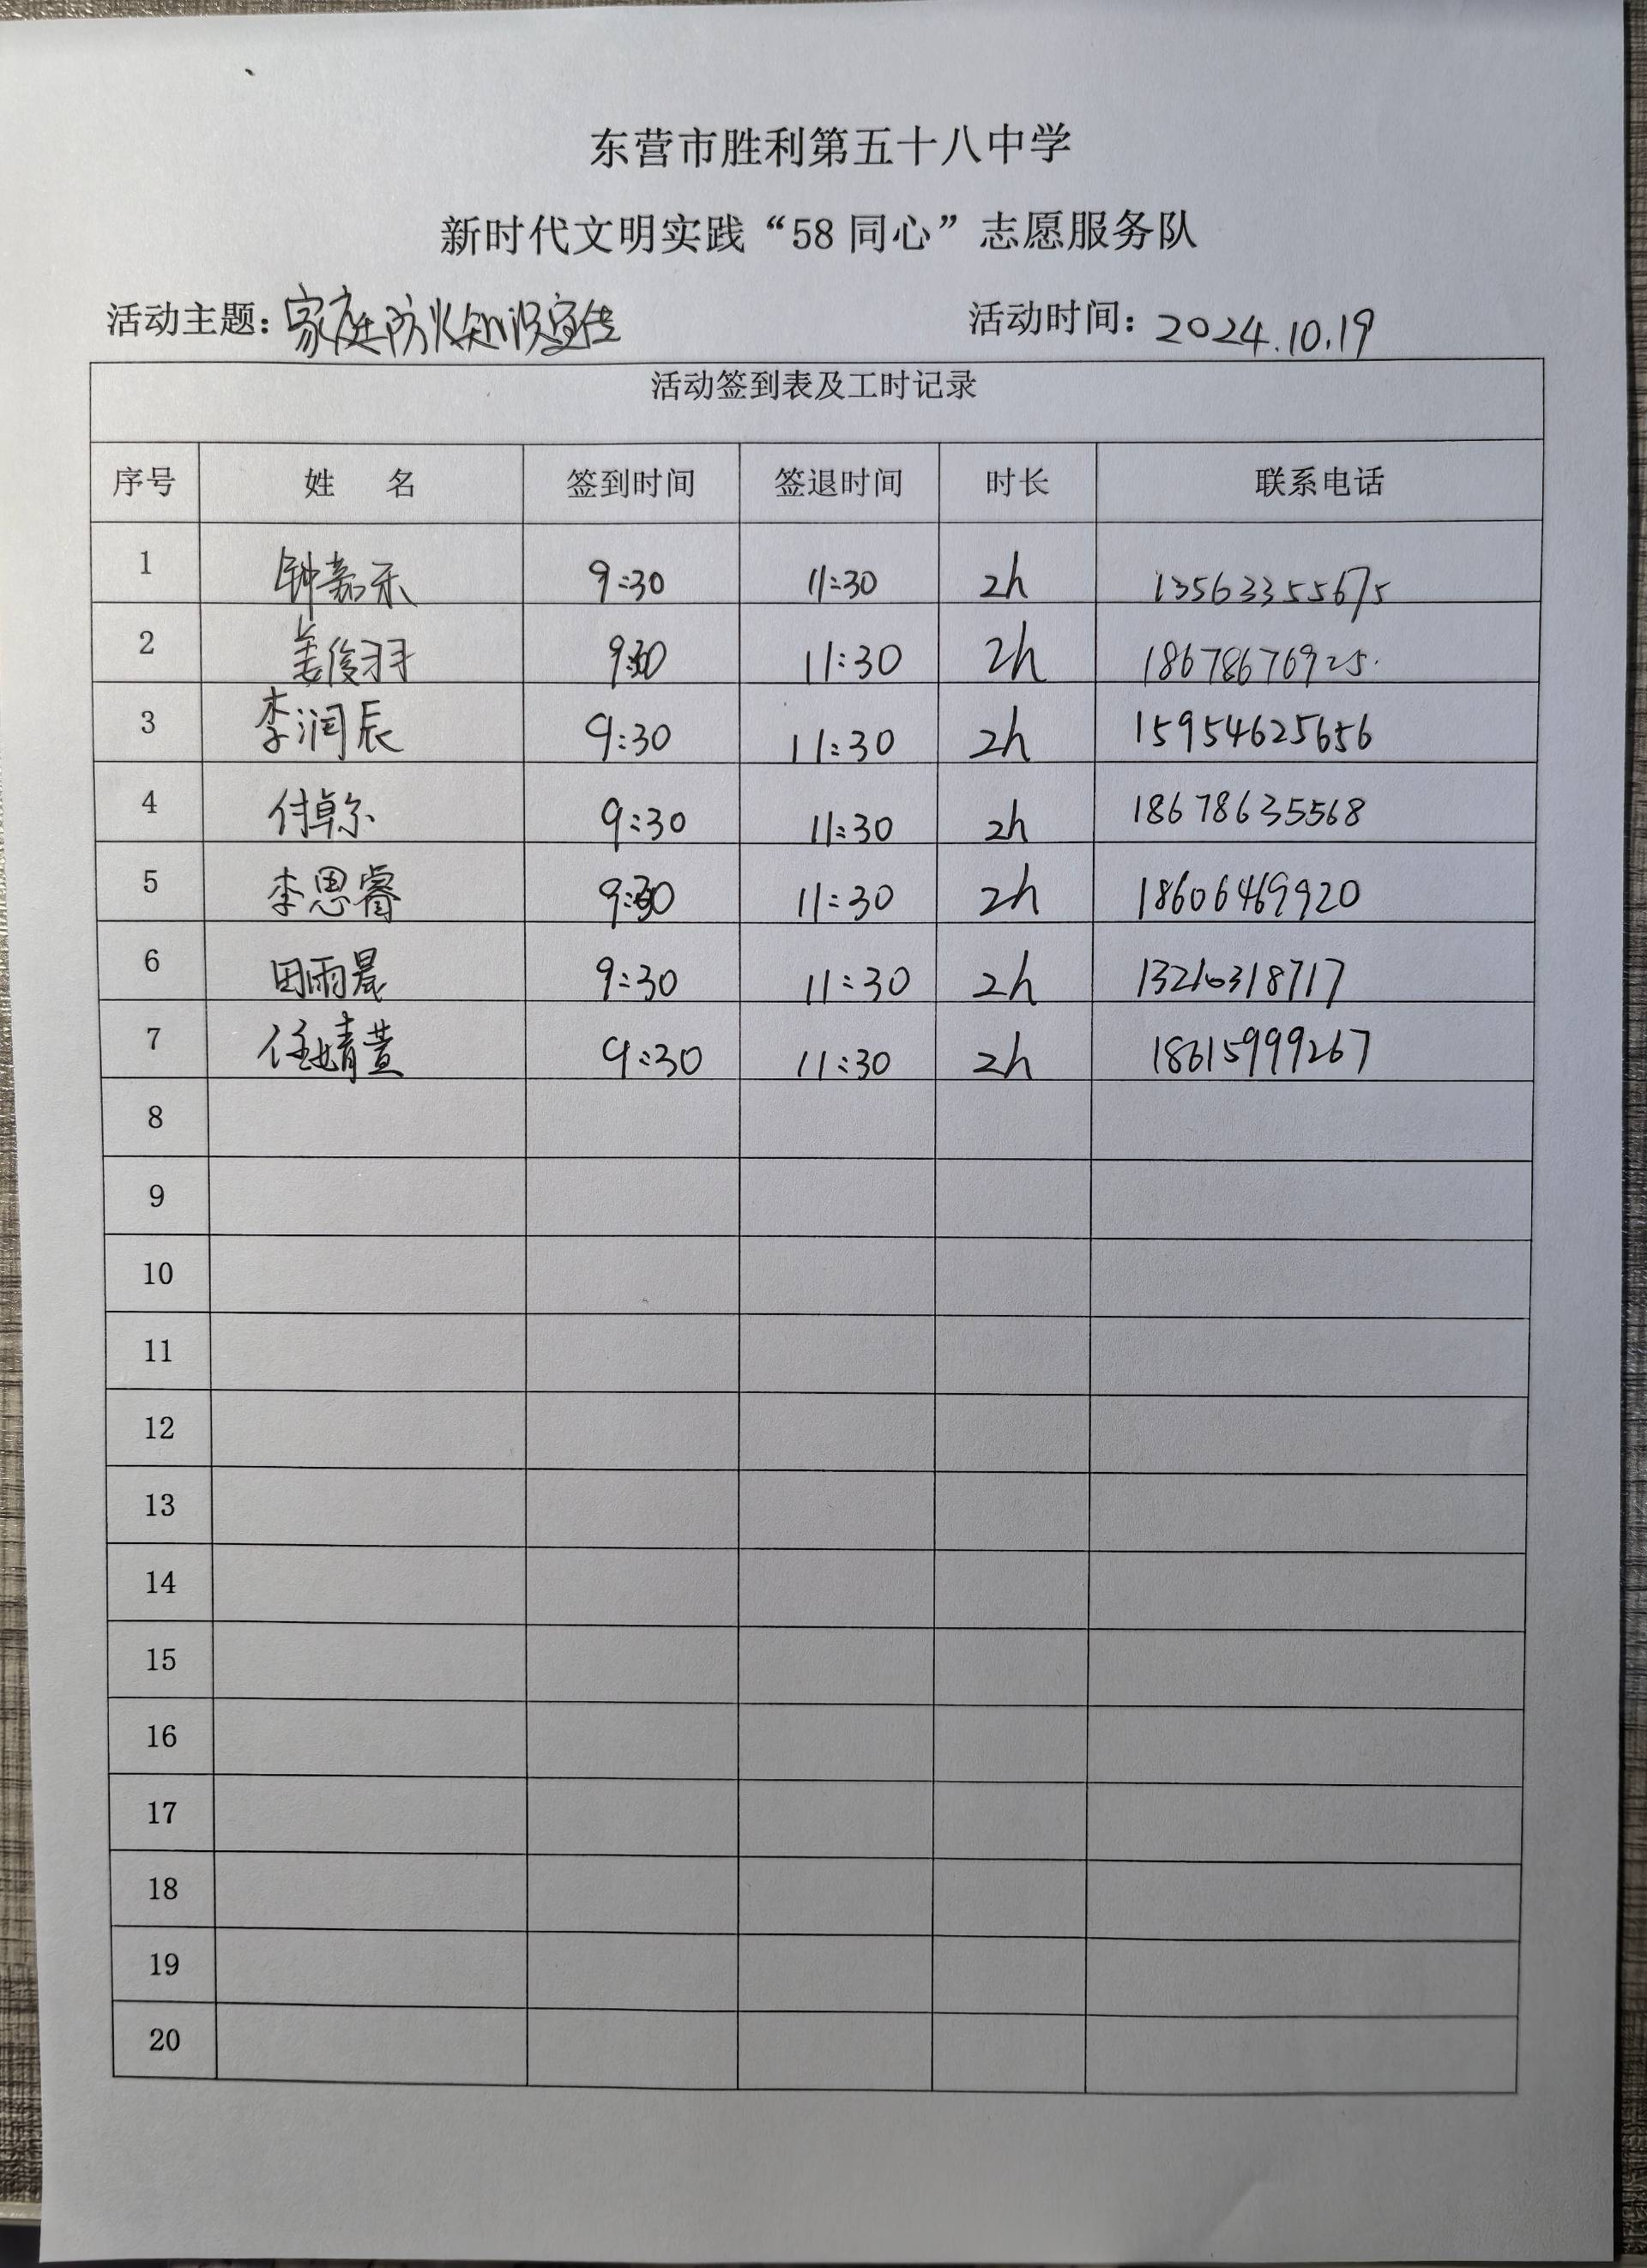 东营市胜利第五十八中学
新时代文明实践“58同心”志愿服务队
活动主题：家庭防火知识宣传 活动时间：2024.10.19
活动签到表及工时记录
序号 姓 名 签到时间 签退时间 时长 联系电话
1 钟嘉禾 9:30 11:30 2h 13563355675
2 姜俊羽 9:30 11:30 2h 18678676925.
3 李润辰 9:30 11:30 2h 15954625656
4 付卓尔 9:30 11:30 2h 18678635568
5 李思睿 9:30 11:30 2h 18606469920
6 田雨晨 9:30 11:30 2h 13210318717
7 任婧萱 9:30 11:30 2h 18615999267
8
9
10
11
12
13
14
15
16
17
18
19
20